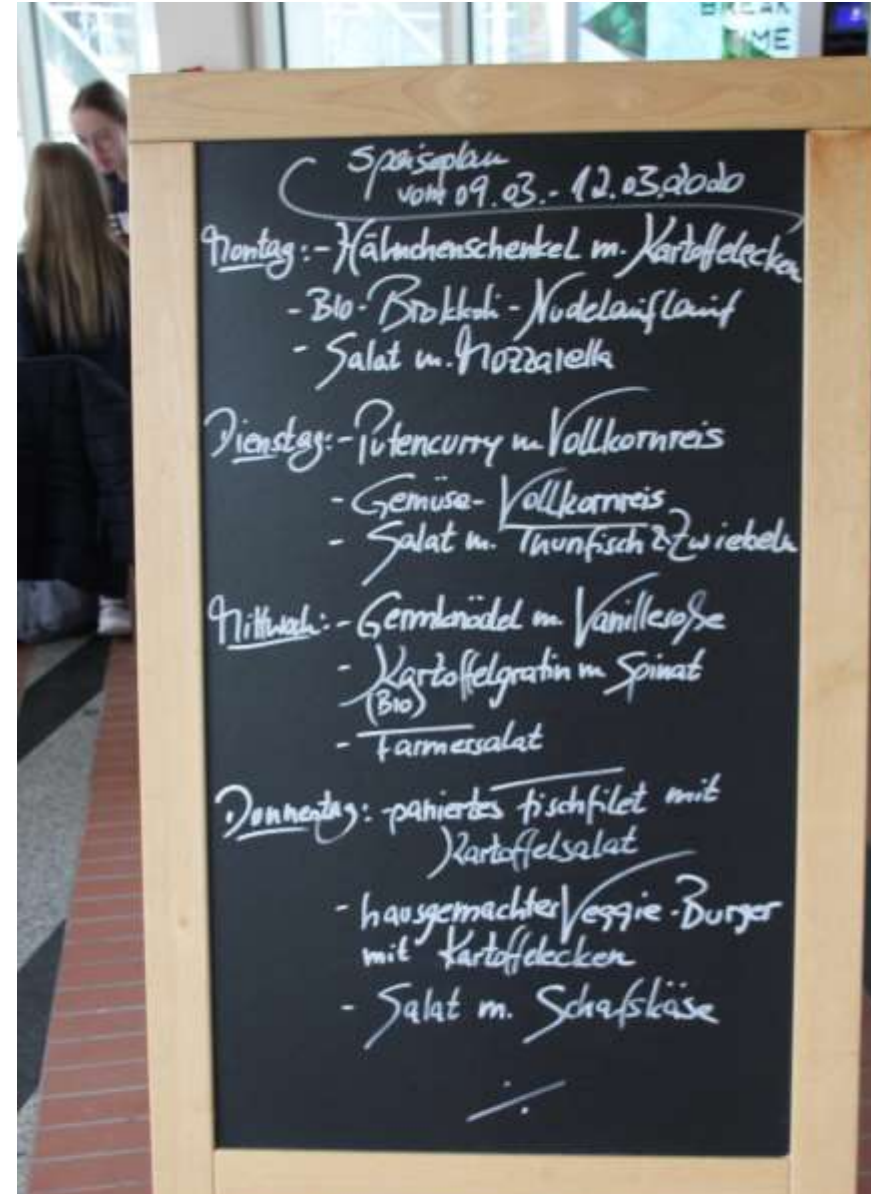 BREAK
TIME
Speiseplan
vom 09.03. - 12.03.2020
Montag: - Hähnchenschenkel m. Kartoffelecken
- Bio - Brokkoli - Nudelauflauf
- Salat m. Mozzarella
Dienstag: - Putencurry m. Vollkornreis
- Gemüse - Vollkornreis
- Salat m. Thunfisch & Zwiebeln
Mittwoch: - Germknödel m. Vanillesoße
- Kartoffelgratin m. Spinat
(Bio)
- Farmersalat
Donnerstag: - paniertes Fischfilet mit
Kartoffelsalat
- hausgemachter Veggie - Burger
mit Kartoffelecken
- Salat m. Schafskäse